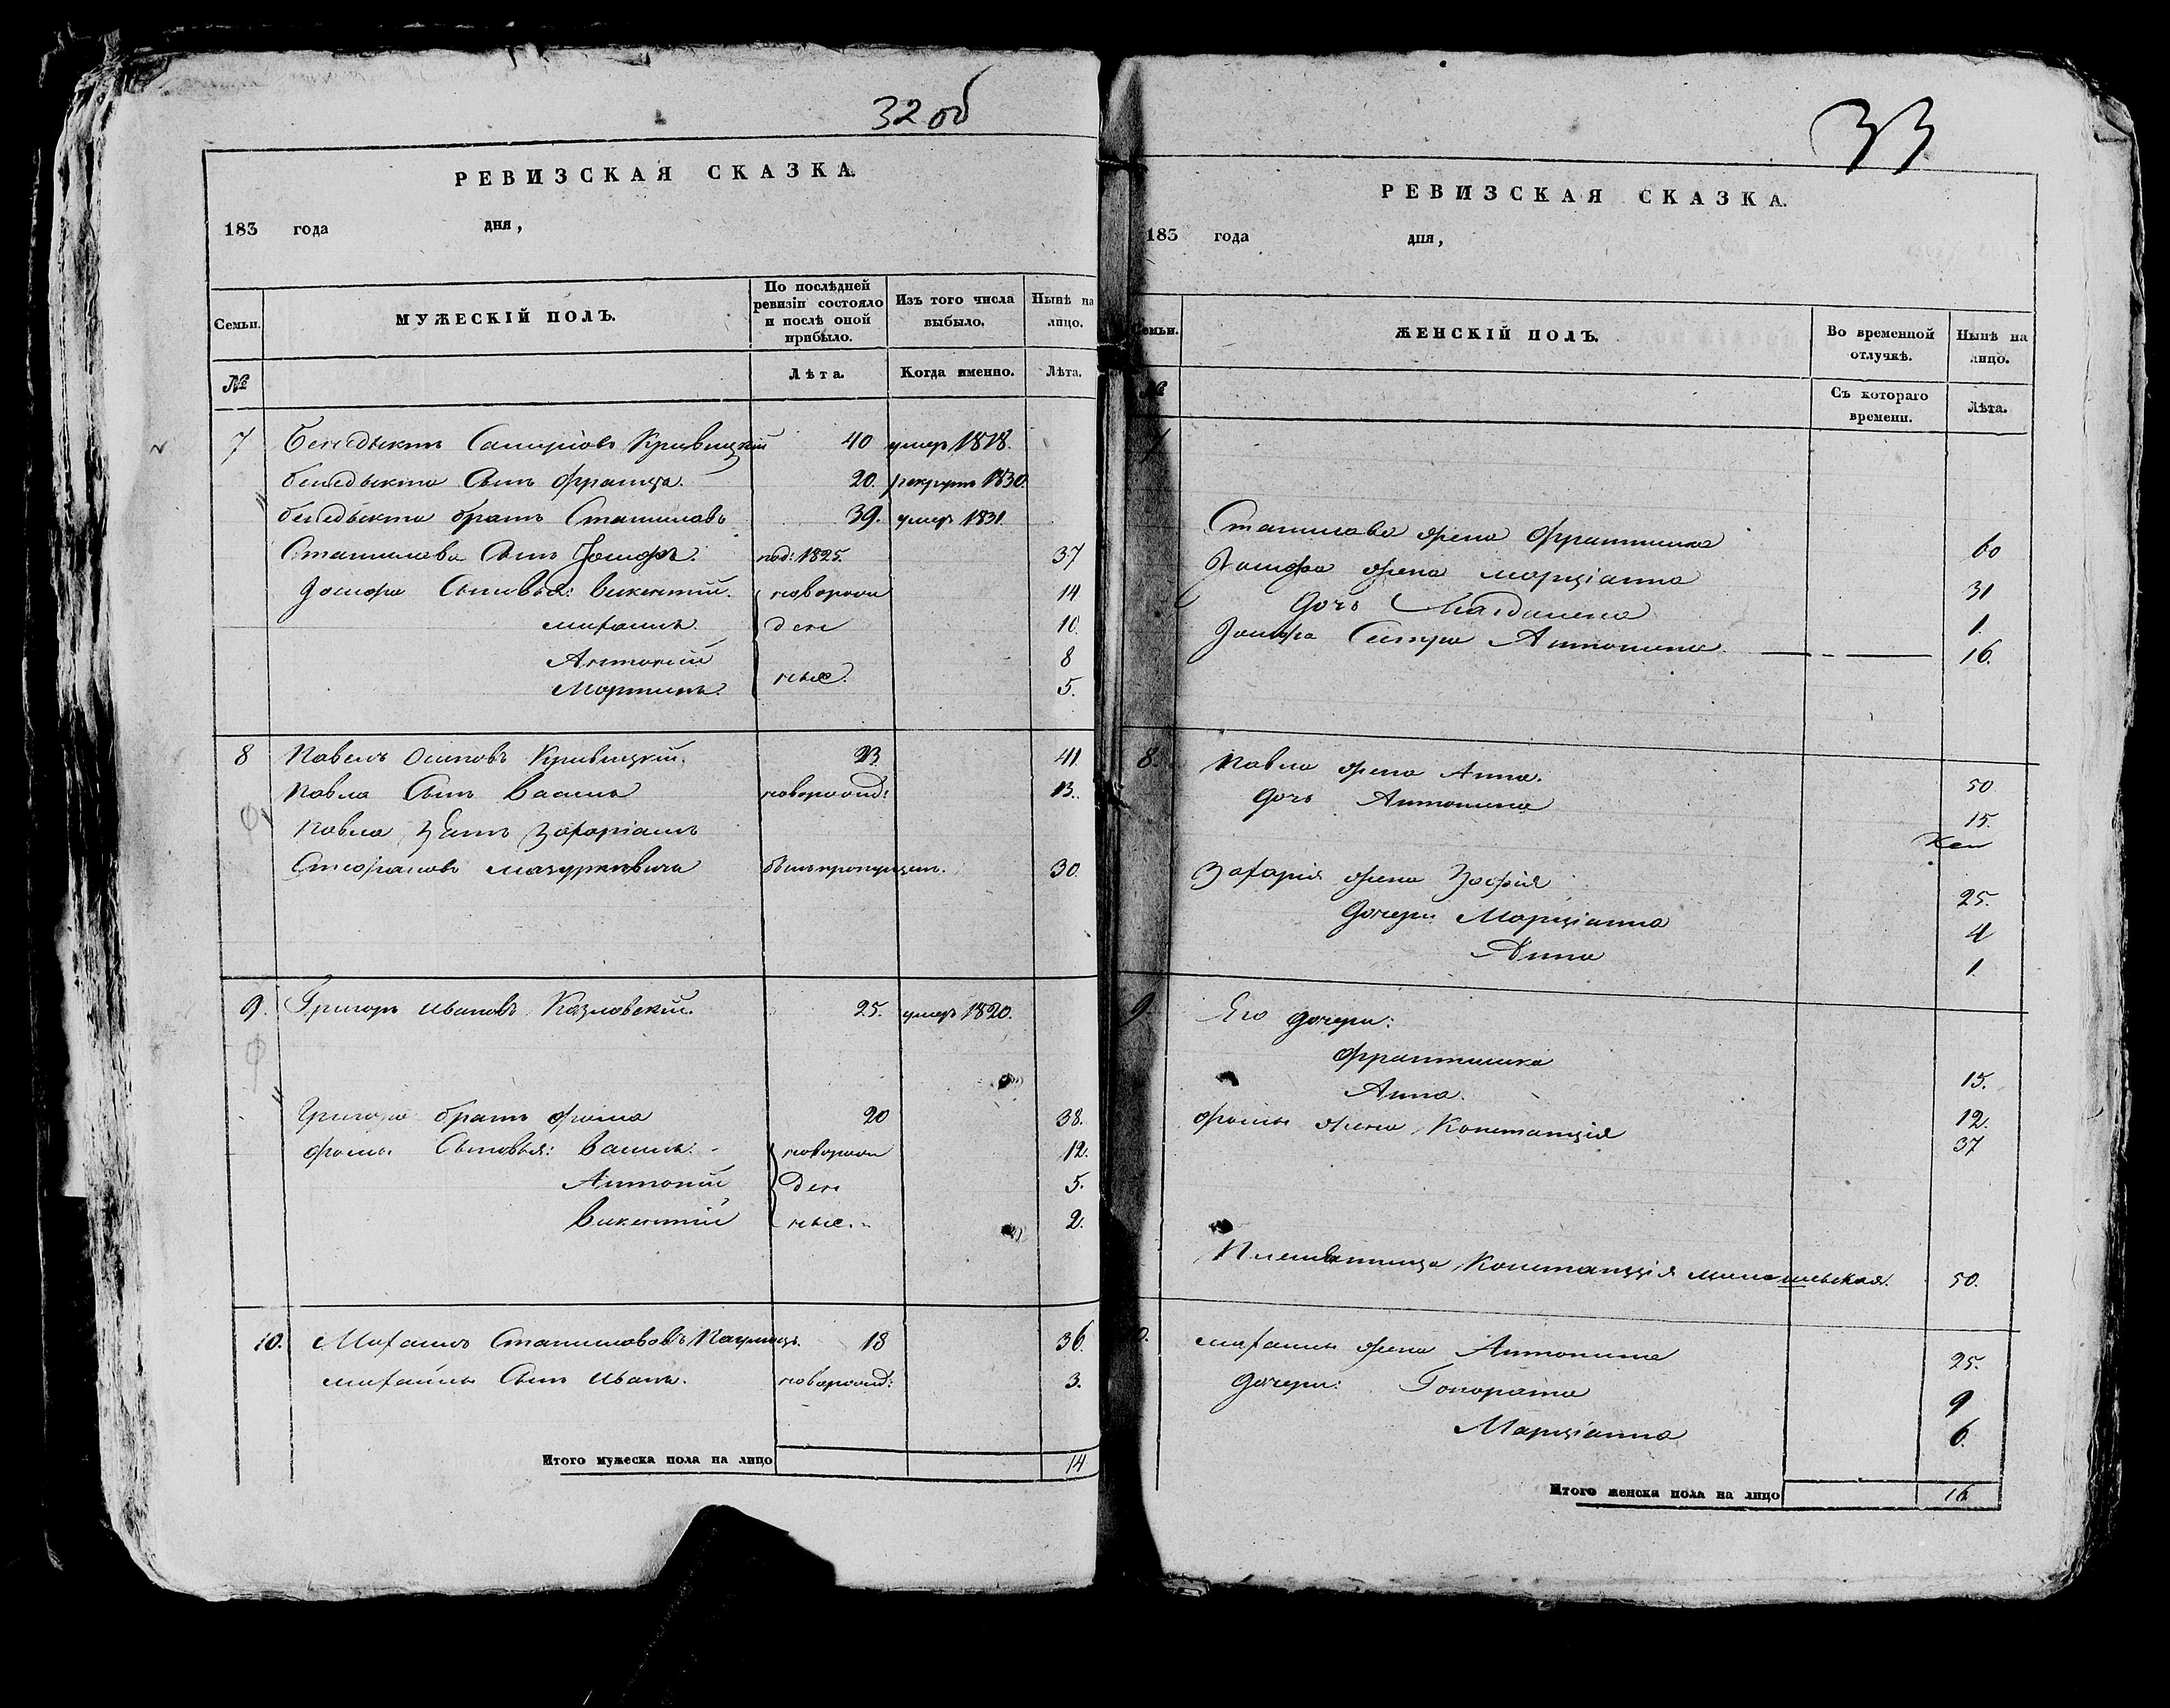 32 об
РЕВИЗСКАЯ СКАЗКА.
183 года дня,
Семьи. МУЖЕСКІЙ ПОЛЪ. По послѣдней ревизіи состояло и послѣ оной прибыло. Изъ того числа выбыло. Нынѣ на лицо.
№ Лѣта. Когда именно. Лѣта.
7 Бенедыктъ Кривицкій 40 умеръ 1818.
бенедыкта Сынъ Франца 20. рекрутъ 1830.
бенедыкта братъ Станиславъ 39. умеръ 1831.
Станислава Сынъ Іосифъ. 1825. 37
Іосифа Сыновья: Викентій. новорож 14
михаилъ. ден 10.
Антоній 8
Мартинъ. ные. 5.
8 Павелъ Осиповъ Кривицкій. 23 41.
Павла Сынъ Василь новорожд: 13.
Павла Зять Захаріашъ
Стефановъ мазуркевичъ былъ пропущен. 30.
9. Григоръ Ивановъ Казловскій. 25. умеръ 1820.
Григора братъ фома 20 38.
фомы Сыновья: Василь. новорож 12.
Антоній ден 5.
Викентій ные. 2.
10. Михаилъ Станиславовъ 18 36.
михаилы Сынъ Иванъ. новорожд: 3.
Итого мужеска пола на лицо 14
33
РЕВИЗСКАЯ СКАЗКА.
183 года дня,
Семьи. ЖЕНСКІЙ ПОЛЪ. Во временной отлучкѣ. Нынѣ на лицо.
№ Съ котораго времени. Лѣта.
7
Станислава жена Франтишка 60
Іосифа жена марціанна 31
Дочь Магдалена 1.
Іосифа Сестра Антонина 16.
8. Павла жена Анна. 50
Дочь Антонина 15.
Захарія жена Зофія 25.
Дочери Марціанна 4
Анна 1.
9. Его дочери:
Франтишка 15.
Анна. 12.
фомы жена Констанція 37
Племянница Констанція 50.
10. михаилы жена Антонина 25.
Дочери: Гонората 9
Марціанна 6.
Итого женска пола на лицо 16